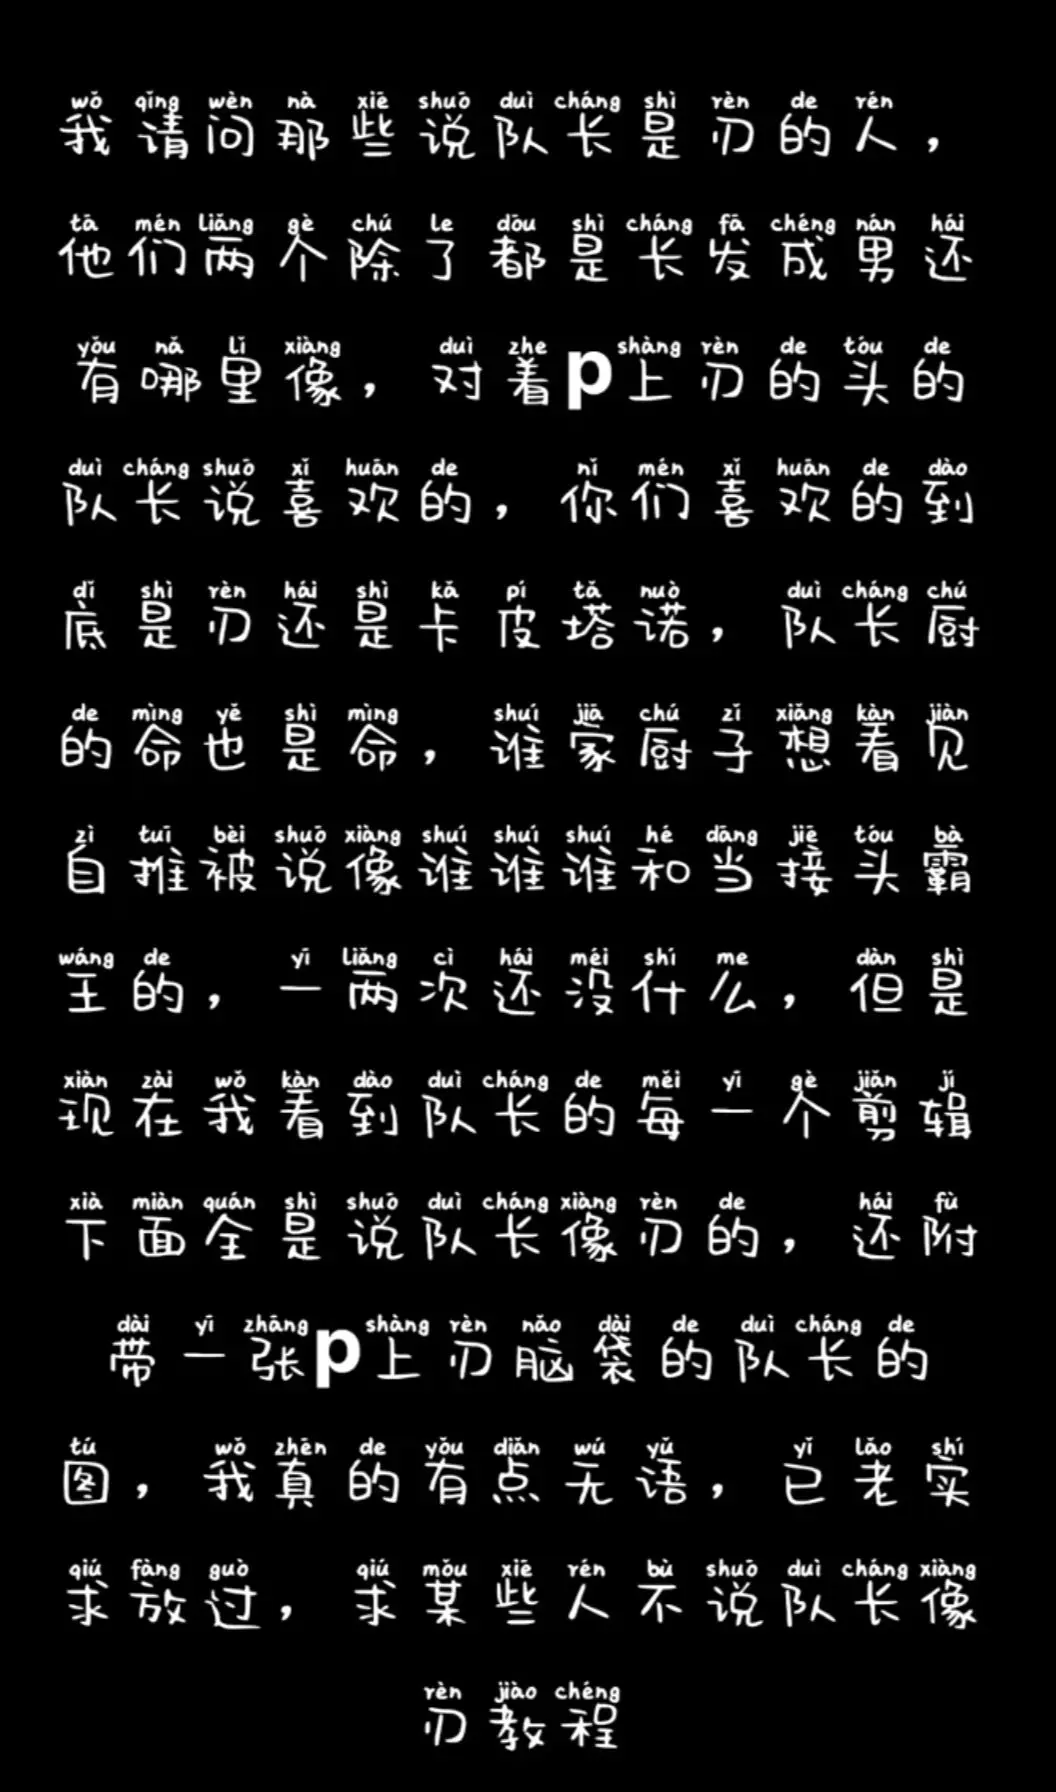 wǒ qǐng wèn nà xiē shuō duì cháng shì rèn de rén
我请问那些说队长是刃的人，
tā mén liǎng gè chú le dōu shì cháng fā chéng nán hái
他们两个除了都是长发成男还
yǒu nǎ lǐ xiàng duì zhe shàng rèn de tóu de
有哪里像，对着p上刃的头的
duì cháng shuō xǐ huān de nǐ mén xǐ huān de dào
队长说喜欢的，你们喜欢的到
dǐ shì rèn hái shì kǎ pí tǎ nuò duì cháng chú
底是刃还是卡皮塔诺，队长厨
de mìng yě shì mìng shuí jiā chú zǐ xiǎng kàn jiàn
的命也是命，谁家厨子想看见
zì tuī bèi shuō xiàng shuí shuí shuí hé dāng jiē tóu bà
自推被说像谁谁谁和当接头霸
wáng de yī liǎng cì hái méi shí me dàn shì
王的，一两次还没什么，但是
xiàn zài wǒ kàn dào duì cháng de měi yī gè jiǎn jí
现在我看到队长的每一个剪辑
xià miàn quán shì shuō duì cháng xiàng rèn de hái fù
下面全是说队长像刃的，还附
dài yī zhāng shàng rèn nǎo dài de duì cháng de
带一张p上刃脑袋的队长的
tú wǒ zhēn de yǒu diǎn wú yǔ yǐ lǎo shí
图，我真的有点无语，已老实
qiú fàng guò qiú mǒu xiē rén bù shuō duì cháng xiàng
求放过，求某些人不说队长像
rèn jiào chéng
刃教程